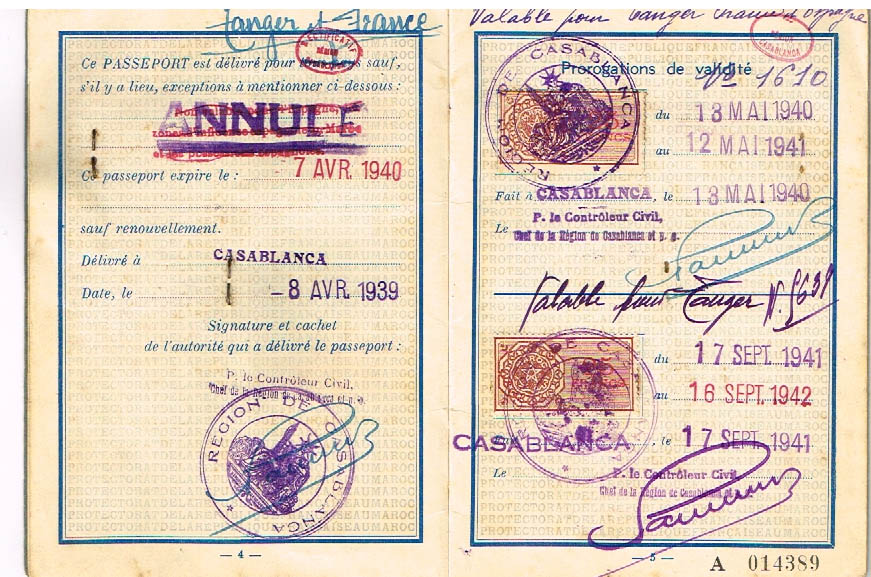 Tanger et France
RECTIFICATIF
CASABLANCA
Ce PASSEPORT est délivré pour tous pays sauf,
s'il y a lieu, exceptions à mentionner ci-dessous :
ANNULÉ
Ce passeport expire le : - 7 AVR. 1940
sauf renouvellement.
Délivré à CASABLANCA
Date, le - 8 AVR. 1939
Signature et cachet
de l'autorité qui a délivré le passeport :
P. le Contrôleur Civil,
Chef de la Région de Casablanca et p. o.
REGION DE CASABLANCA
— 4 —
Valable pour Tanger France et Espagne
CASABLANCA
Prorogations de validité
No 1610
REGION DE CASABLANCA
du 13 MAI 1940
au 12 MAI 1941
Fait à CASABLANCA, le 13 MAI 1940
P. le Contrôleur Civil,
Le Chef de la Région de Casablanca et p. o.
Valable pour Tanger N. 5631
REGION DE CASABLANCA
du 17 SEPT. 1941
au 16 SEPT. 1942
CASABLANCA, le 17 SEPT. 1941
Le P. le Contrôleur Civil,
Chef de la Région de Casablanca et
— 5 —
A 014389